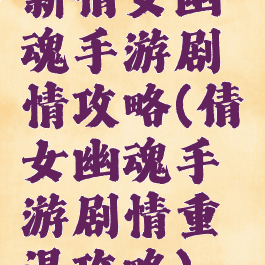 新倩女幽
魂手游剧
情攻略(倩
女幽魂手
游剧情重
温攻略)